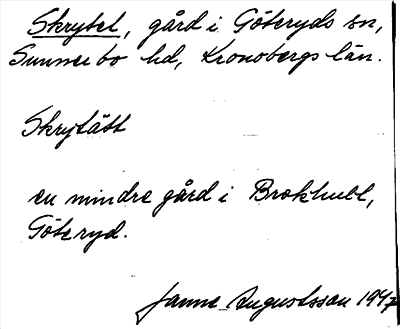 Skrytet, gård i Göteryds sn,
Sunnerbo hd, Kronobergs län.
Skrytätt
en mindre gård i Brokhult,
Göteryd.
Janne Augustsson 1947